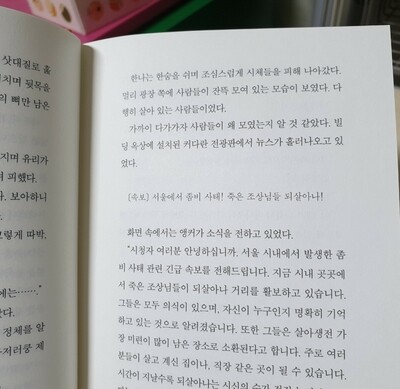 삿대질로 훑
치며 뒷목을
의 뼈만 남은
지며 유리가
져 피했다.
다. 보아하니
그렇게 따박.
에는……."
았다.
정체를 알
아저러쿵 제
한나는 한숨을 쉬며 조심스럽게 시체들을 피해 나아갔다.
멀리 광장 쪽에 사람들이 잔뜩 모여 있는 모습이 보였다. 다
행히 살아 있는 사람들이었다.
가까이 다가가자 사람들이 왜 모였는지 알 것 같았다. 빌
딩 옥상에 설치된 커다란 전광판에서 뉴스가 흘러나오고 있
었다.
[속보] 서울에서 좀비 사태! 죽은 조상님들 되살아나!
화면 속에서는 앵커가 소식을 전하고 있었다.
"시청자 여러분 안녕하십니까. 서울 시내에서 발생한 좀
비 사태 관련 긴급 속보를 전해드립니다. 지금 시내 곳곳에
서 죽은 조상님들이 되살아나 거리를 활보하고 있습니다.
그들은 모두 의식이 있으며, 자신이 누구인지 명확히 기억
하고 있는 것으로 알려졌습니다. 또한 그들은 살아생전 가
장 미련이 많이 남은 장소로 소환된다고 합니다. 주로 여러
분들이 살고 계신 집이나, 직장 같은 곳이 될 수 있습니다.
시간이 지날수록 되살아나는 시신의 숫자